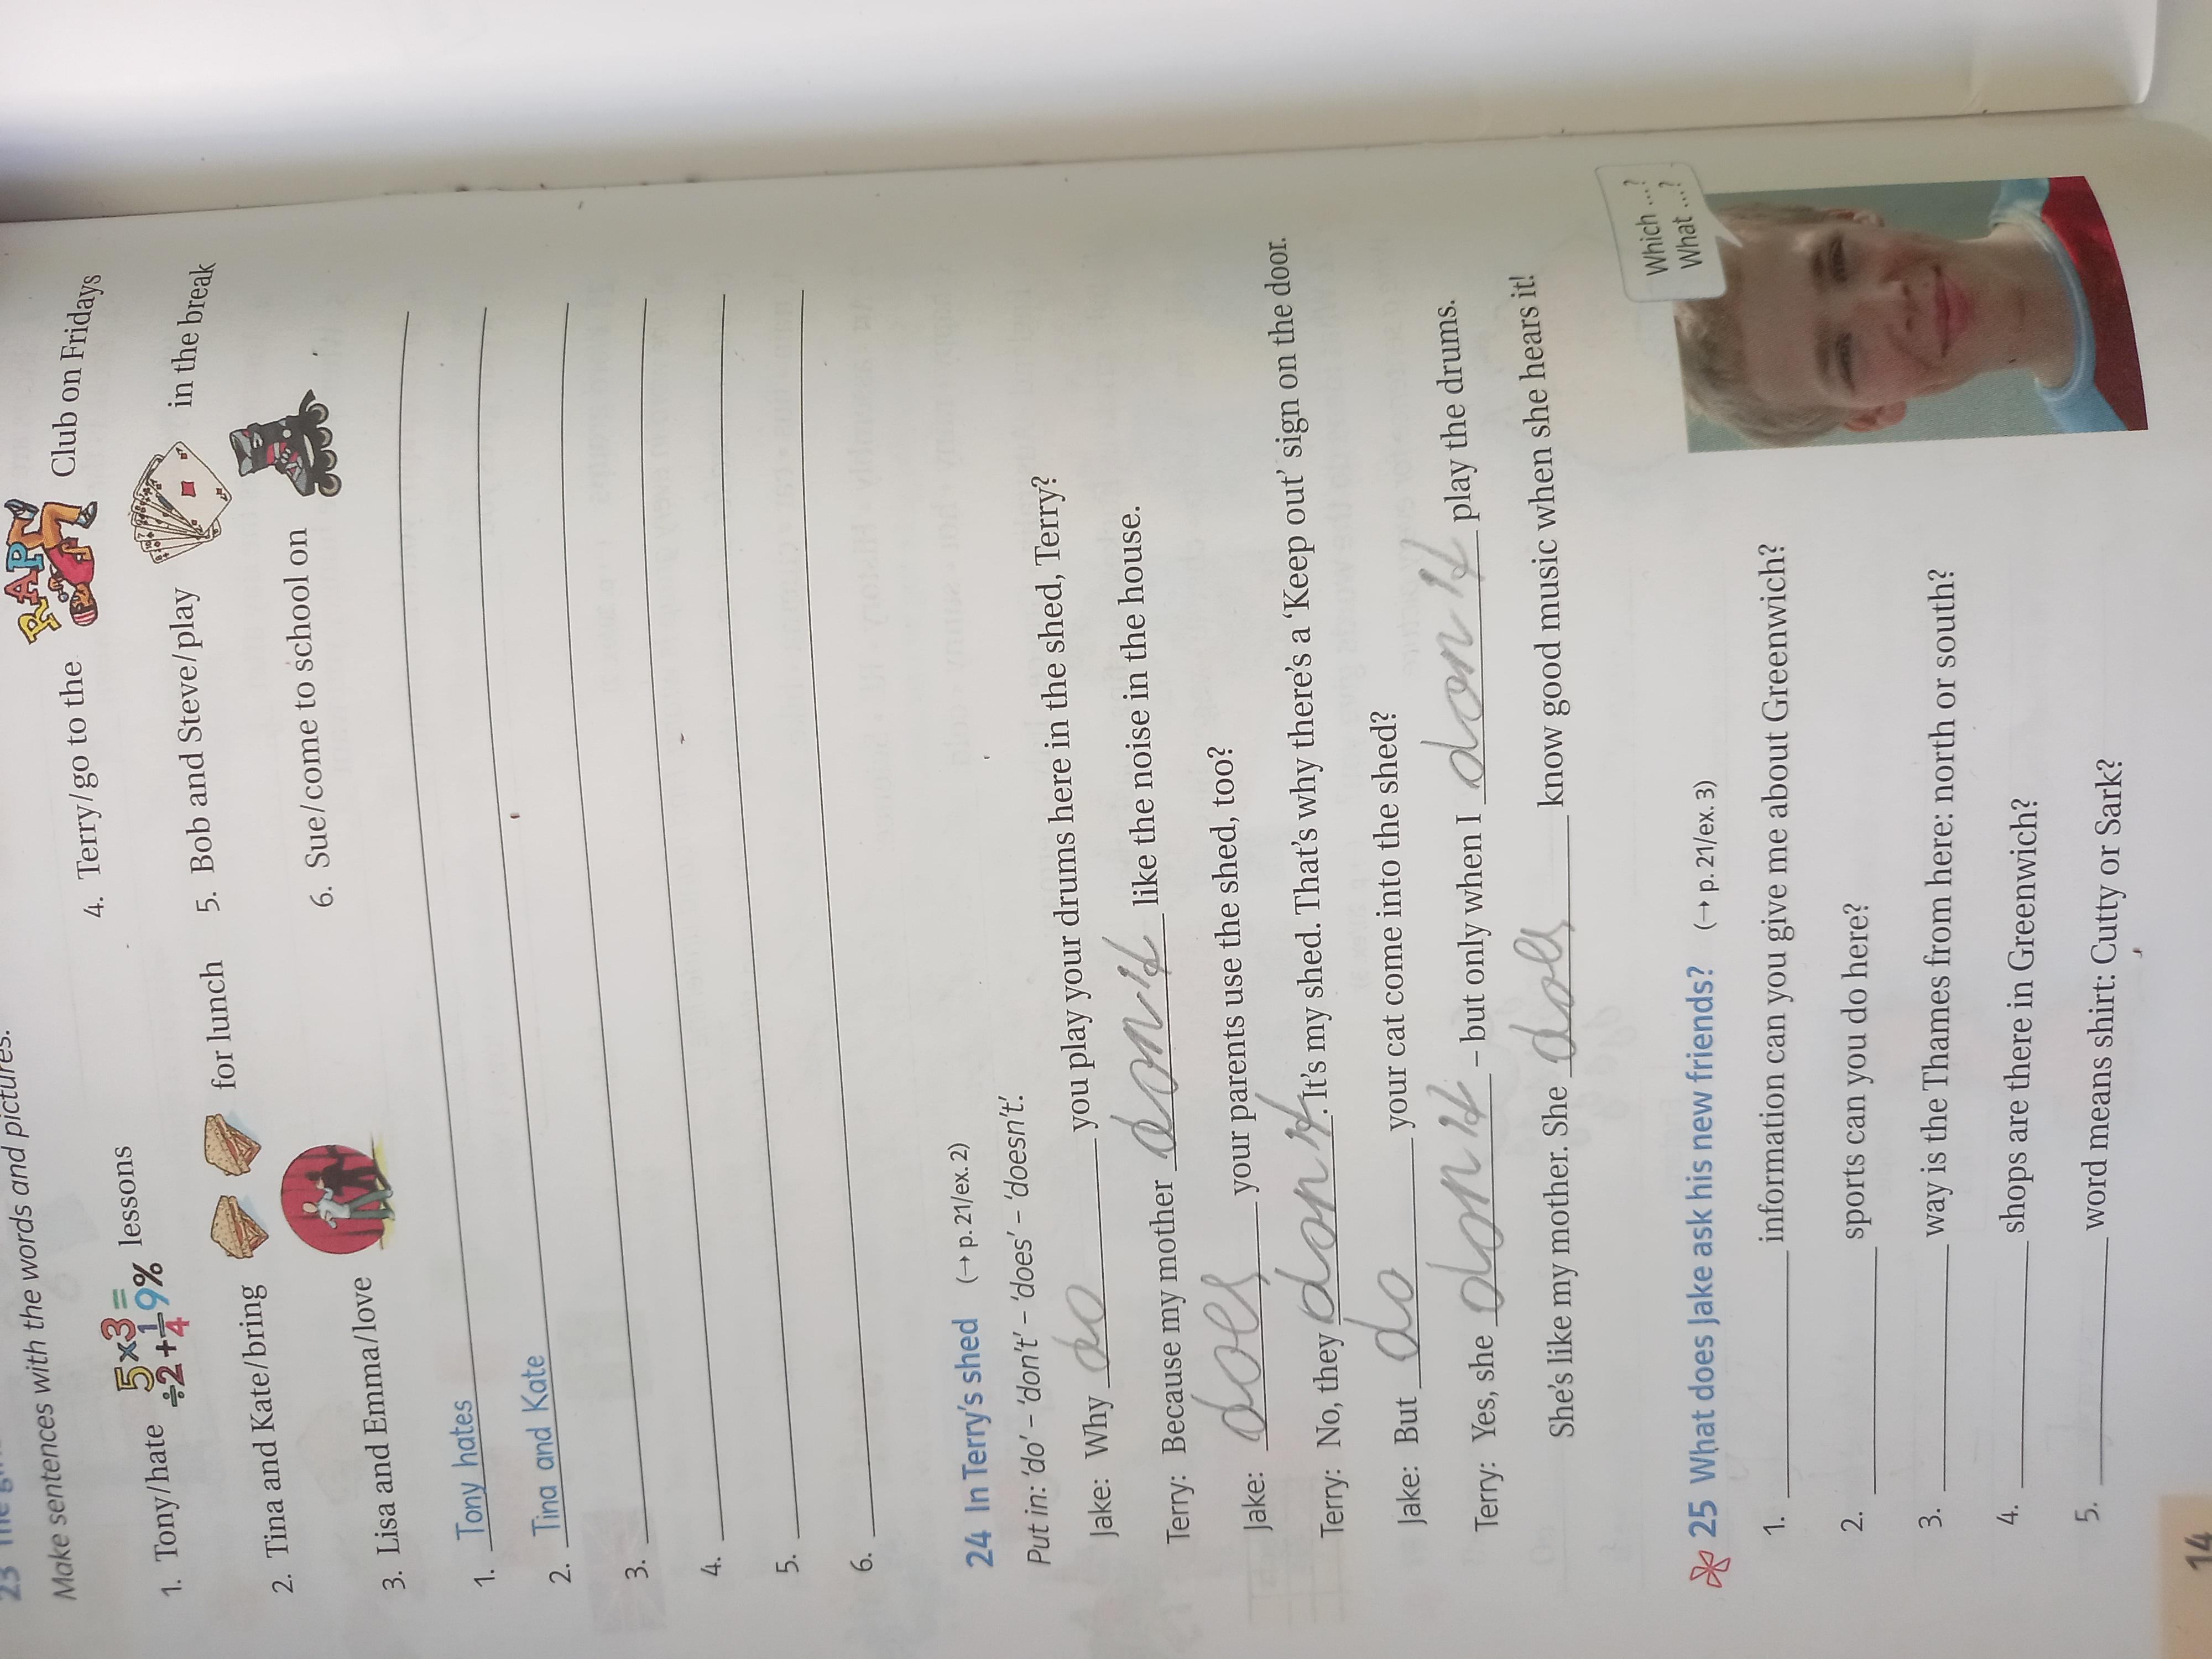 23 The
Make sentences with the words and pictures.
1. Tony/hate 5x3= ÷2+1/4 9% lessons
2. Tina and Kate/bring for lunch
3. Lisa and Emma/love
4. Terry/go to the RAP Club on Fridays
5. Bob and Steve/play in the break
6. Sue/come to school on .
1. Tony hates
2. Tina and Kate
3.
4.
5.
6.
24 In Terry's shed (→ p. 21/ex. 2)
Put in: 'do' – 'don't' – 'does' – 'doesn't'.
Jake: Why do you play your drums here in the shed, Terry?
Terry: Because my mother don't like the noise in the house.
Jake: does your parents use the shed, too?
Terry: No, they don't. It's my shed. That's why there's a 'Keep out' sign on the door.
Jake: But do your cat come into the shed?
Terry: Yes, she don't – but only when I don't play the drums.
She's like my mother. She does know good music when she hears it!
25 What does Jake ask his new friends? (→ p. 21/ex. 3)
Which ...?
What ...?
1. information can you give me about Greenwich?
2. sports can you do here?
3. way is the Thames from here: north or south?
4. shops are there in Greenwich?
5. word means shirt: Cutty or Sark?
14